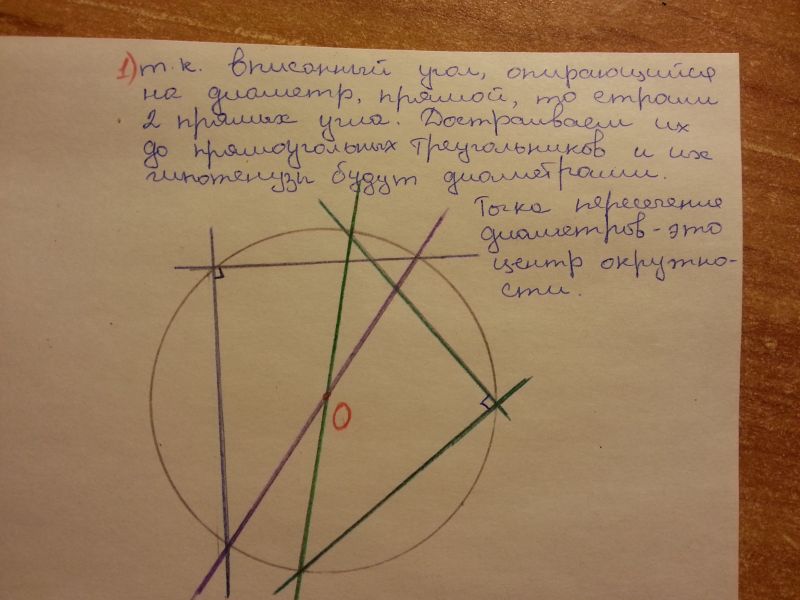 1) т.к. вписанный угол, опирающийся
на диаметр, прямой, то строим
2 прямых угла. Достраиваем их
до прямоугольных треугольников и их
гипотенузы будут диаметрами.
Точка пересечение
диаметров - это
центр окружно-
сти.
O